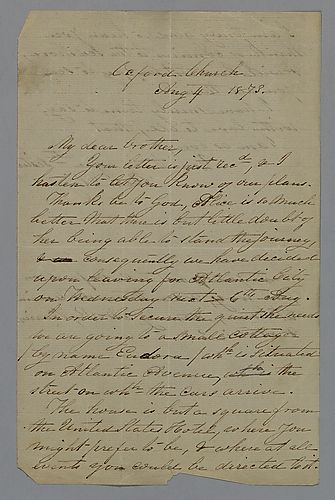 Oxford Church
Aug 4 1873.
My dear brother,
Your letter is just recd, & I
hasten to let you know of our plans.
Thanks be to God, Alice is so much
better that there is but little doubt of
her being able to stand the journey,
& consequently we have decided
upon leaving for Atlantic City
on Wednesday next 6th Aug.
In order to secure the quiet she needs
we are going to a small cottage
by name Eudora, wh: is situated
on Atlantic Avenue, is the
street on wh: the cars arrive.
The house is but a square from
the United States Hotel, where you
might prefer to be, & where at all
events you could be directed to it.